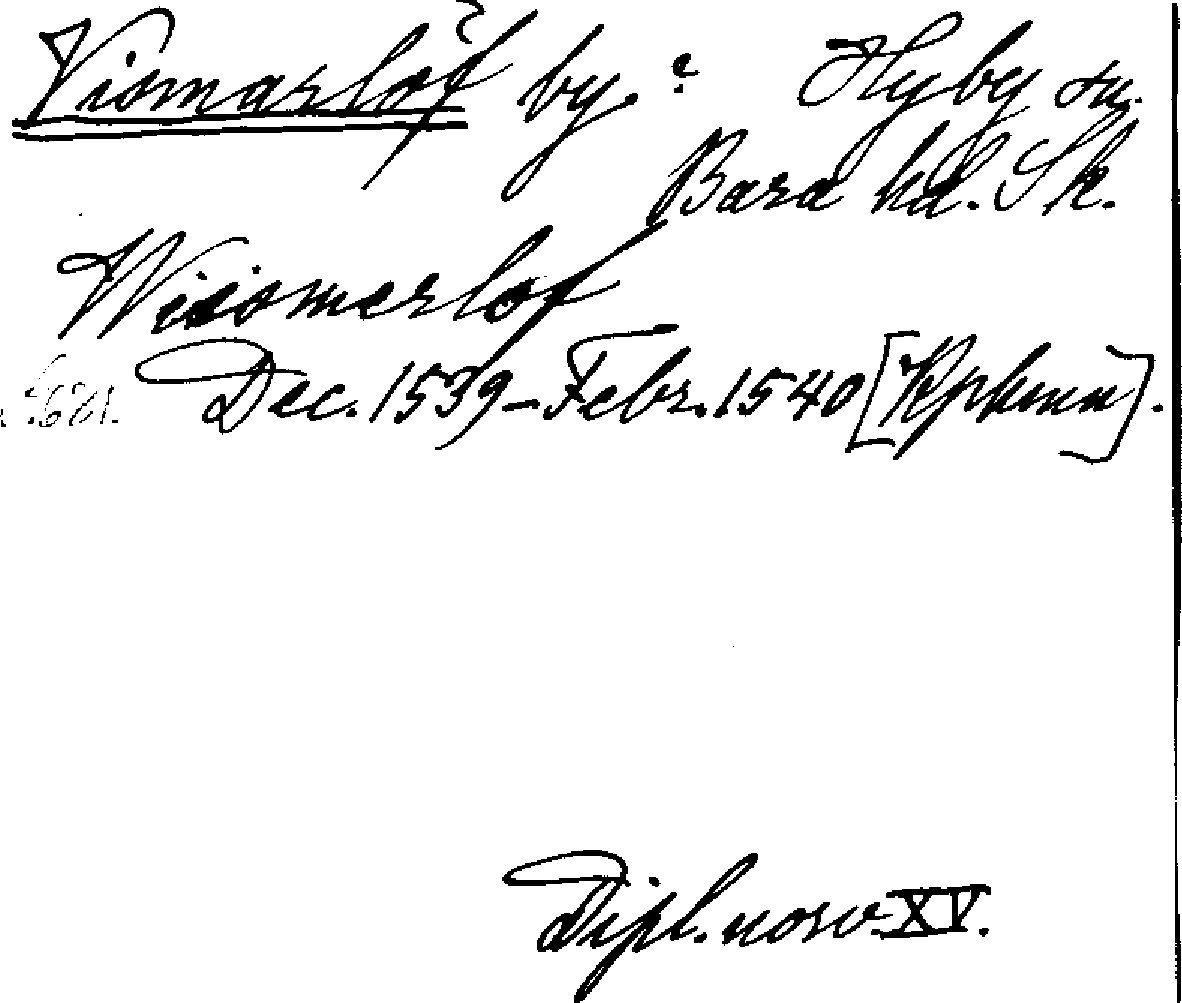 Vismarlöf by. Hyby sn.
Bara hd. Sk.
Wiismerlof
Dec. 1539–Febr. 1540 [Kphmn].
Dipl. norv. XV.